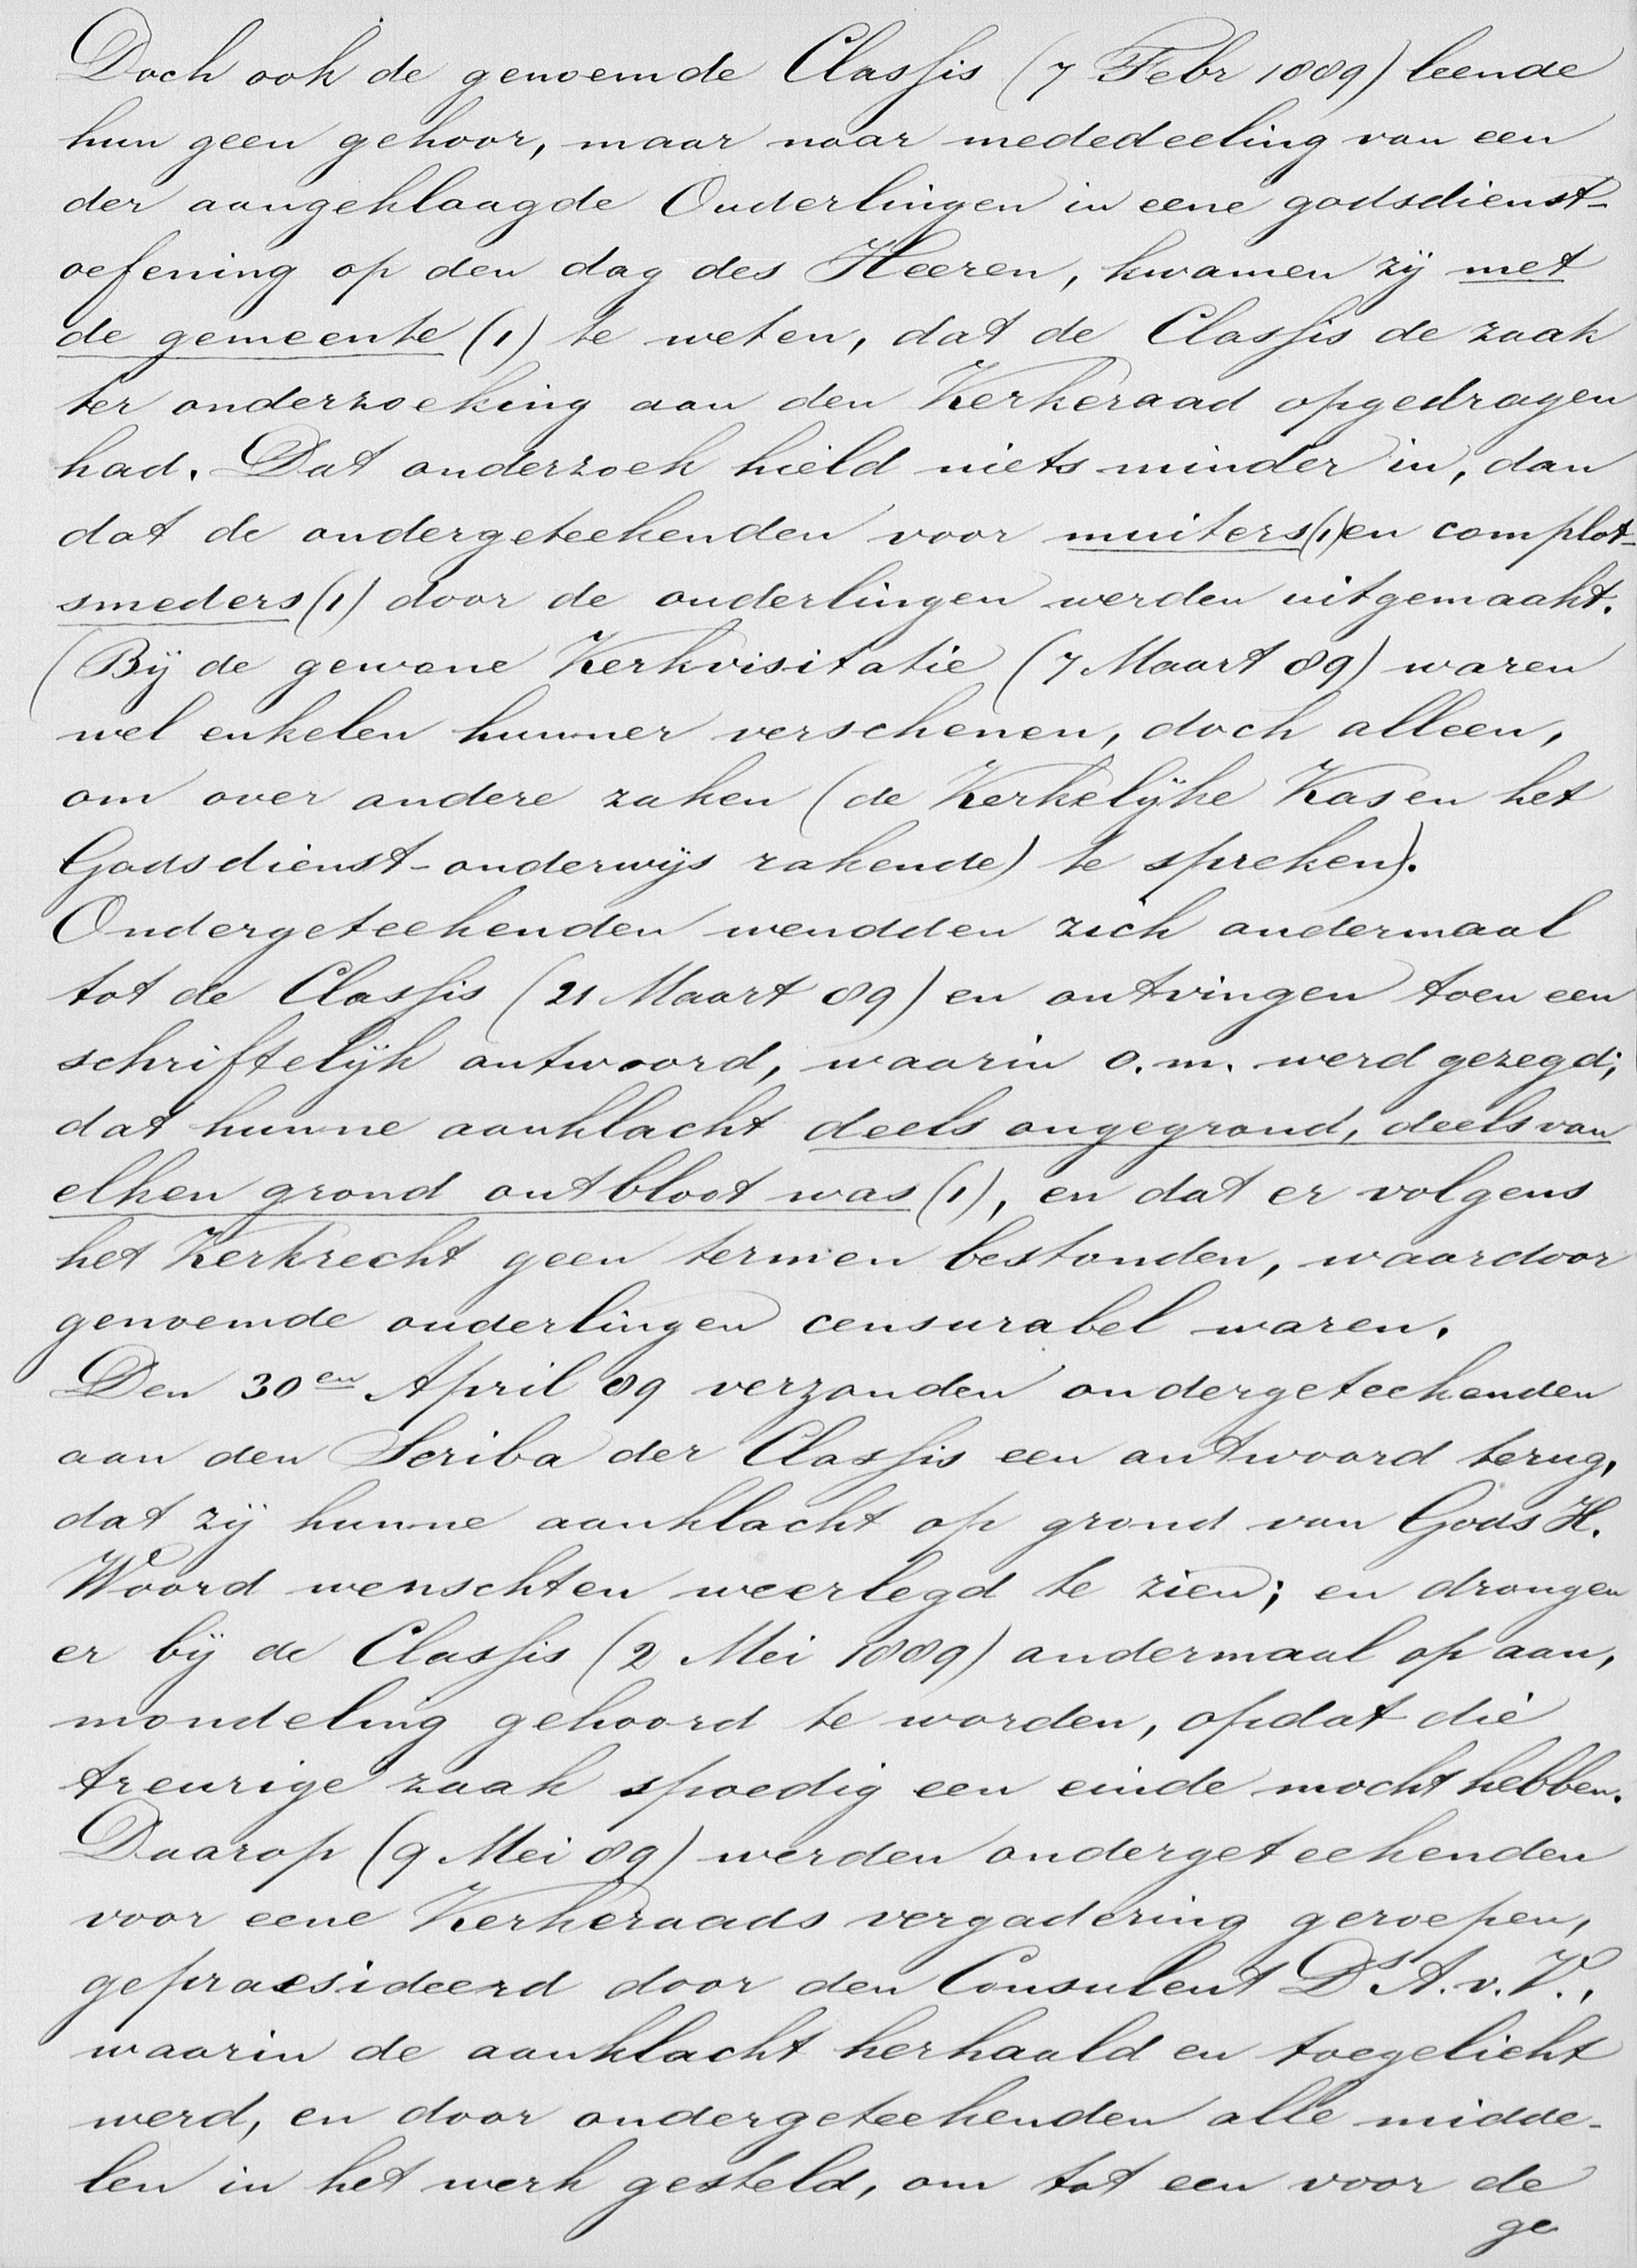 Doch ook de genoemde Classis (7 Febr 1889) leende
hun geen gehoor, maar naar mededeeling van een
der aangeklaagde Ouderlingen in eene godsdienst-
oefening op den dag des Heeren, kwamen zij met
de gemeente (1) te weten, dat de Classis de zaak
ter onderzoeking aan den Kerkeraad opgedragen
had. Dat onderzoek hield niets minder in, dan
dat de ondergeteekenden voor muiters (1) en complot-
smeders (1) door de ouderlingen werden uitgemaakt.
(Bij de gewone Kerkvisitatie (7 Maart 89) waren
wel enkelen hunner verschenen, doch alleen,
om over andere zaken (de Kerkelijke Kas en het
Godsdienst-onderwijs rakende) te spreken).
Ondergeteekenden wendden zich andermaal
tot de Classis (21 Maart 89) en ontvingen toen een
schriftelijk antwoord, waarin o.m. werd gezegd;
dat hunne aanklacht deels ongegrond, deels van
elken grond ontbloot was (1), en dat er volgens
het Kerkrecht geen termen bestonden, waardoor
genoemde ouderlingen censurabel waren.
Den 30en April 89 verzonden ondergeteekenden
aan den Scriba der Classis een antwoord terug,
dat zij hunne aanklacht op grond van Gods H.
Woord wenschten weerlegd te zien; en drongen
er bij de Classis (2 Mei 1889) andermaal op aan,
mondeling gehoord te worden, opdat die
treurige zaak spoedig een einde mocht hebben.
Daarop (9 Mei 89) werden ondergeteekenden
voor eene Kerkeraads vergadering geroepen,
gepraesideerd door den Consulent Ds A. v. V.,
waarin de aanklacht herhaald en toegelicht
werd, en door ondergeteekenden alle midde-
len in het werk gesteld, om tot een voor de
ge